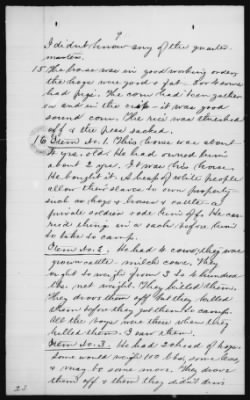 9
I didn't know any of the quarter
masters.
15 The horse was in good working order
the hogs were good & fat. For &
had pigs. The corn had been gather
ed and in the crib - it was good
sound corn. The rice was threshed
off & the peas sacked.
16 Item No. 1. This horse was about
yrs. old. He had owned him
about 2 yrs. It was his horse.
He bought it. A heap of white people
allow their slaves to own property
such as hogs & horses & cattle. A
private soldier rode him off. He car
ried things in a sack before him
to take to camp.
Item No. 2. He had 4 cows, they was
grown cattle milch cows. They
ought to weigh from 3 to 4 hundred
lbs. net weight. They killed them.
They drove them off but they killed
them before they got them to camp.
All the boys were there when they
killed them. I saw them.
Item No. 3. He had 20 head of hogs
Some would weigh 100 lbs, some less
& may be some more. They drove
them off & then they didn't drive
23